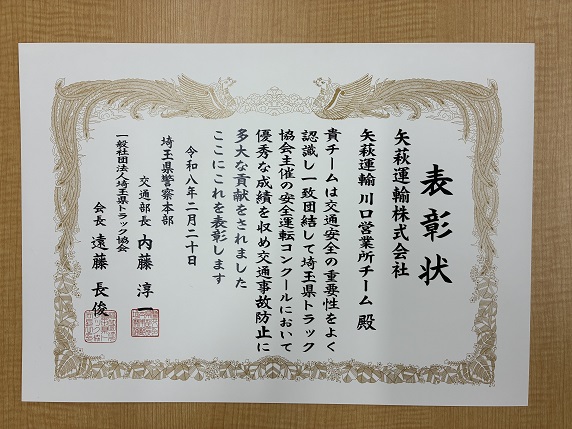 表彰状
矢萩運輸株式会社
矢萩運輸 川口営業所チーム 殿
貴チームは交通安全の重要性をよく
認識し一致団結して埼玉県トラック
協会主催の安全運転コンクールにおいて
優秀な成績を収め交通事故防止に
多大な貢献をされました
ここにこれを表彰します
令和八年二月二十日
埼玉県警察本部
交通部長 内藤 淳一
一般社団法人埼玉県トラック協会
会長 遠藤 長俊